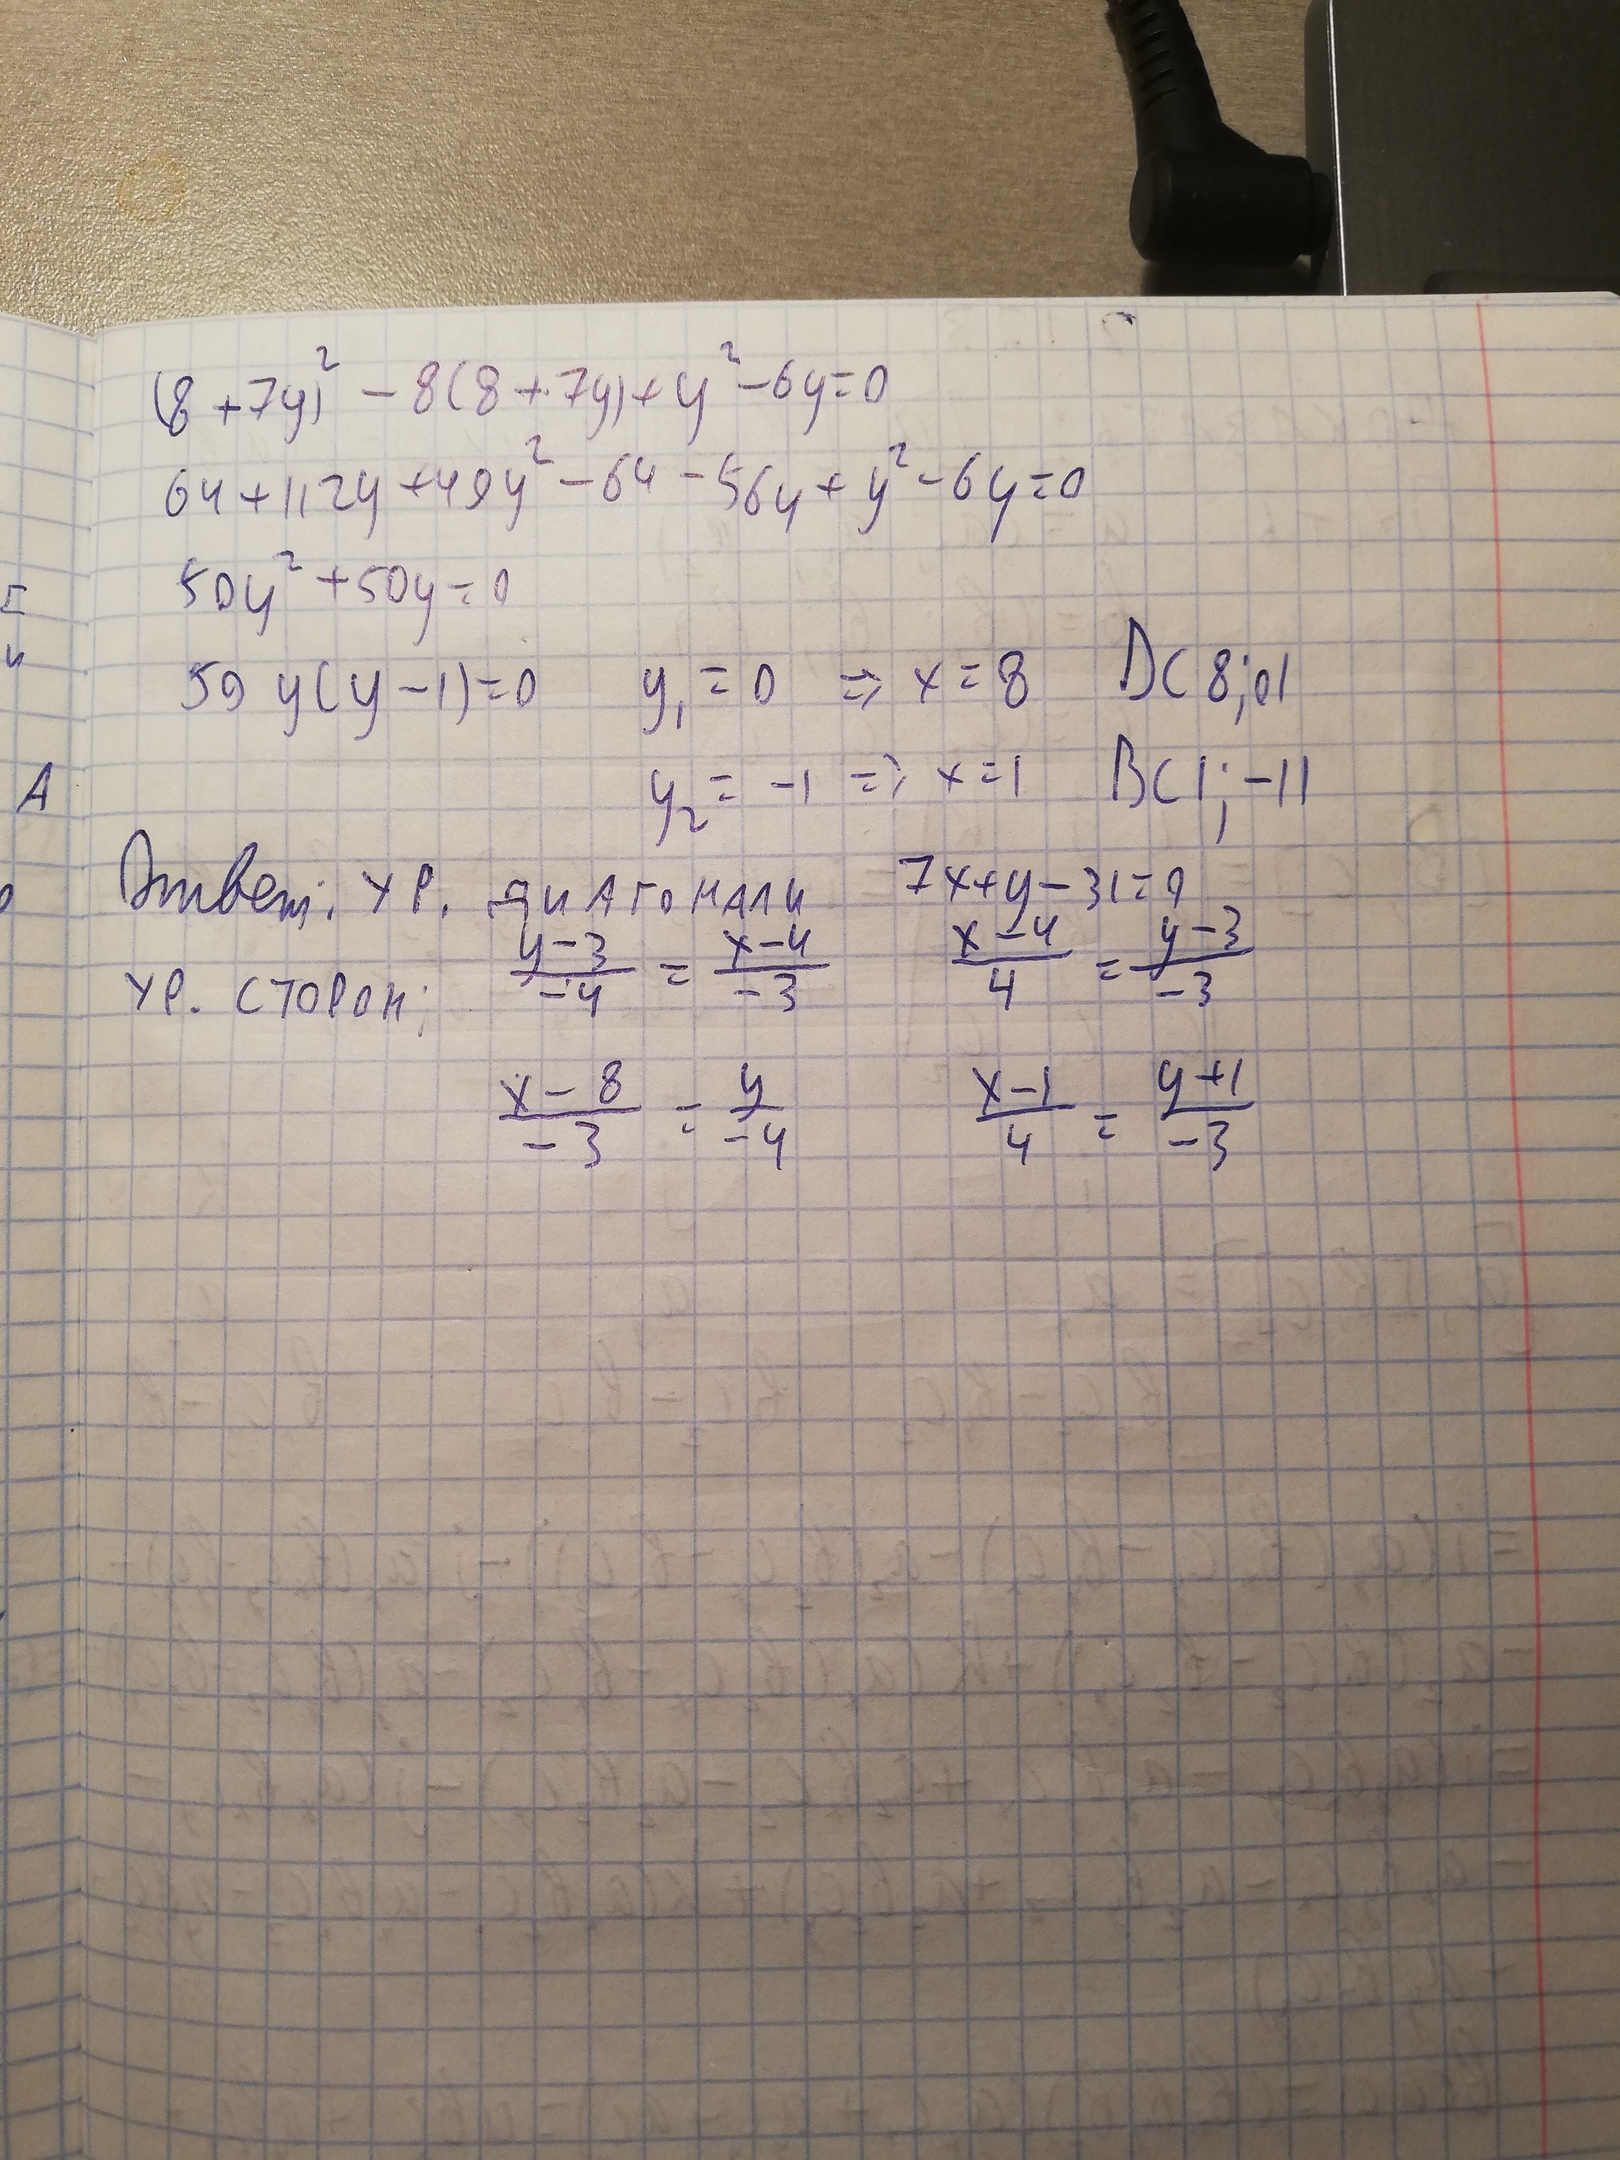 (8+7y)² - 8(8+7y)+y²-6y=0
64+112y+49y²-64-56y+y²-6y=0
50y²+50y=0
50 y(y-1)=0 y₁=0 => x=8 D(8;0)
y₂=-1 => x=1 B(1;-1)
А
Ответ: УР. ДИАГОНАЛИ 7x+y-31=0
УР. СТОРОН: (y-3)/(-4) = (x-4)/(-3) (x-4)/4 = (y-3)/(-3)
(x-8)/(-3) = y/(-4) (x-1)/4 = (y+1)/(-3)